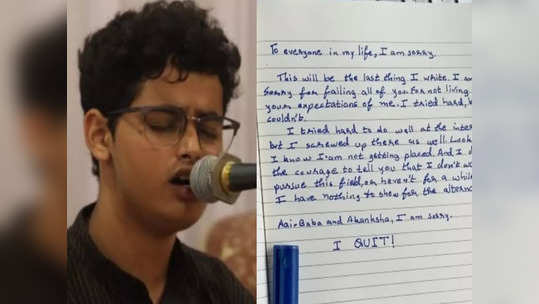 To everyone in my life, I am sorry.
This will be the last thing I write. I am
sorry for failing all of you. For not living
your expectations of me. I tried hard,
couldn't.
I tried hard to do well at the
but I screwed up there as well.
I know I am not getting placed. And I
the courage to tell you that I don't
pursue this field, or haven't for a while
I have nothing to show for the
Aai-Baba and Akanksha, I'm sorry.
I QUIT!